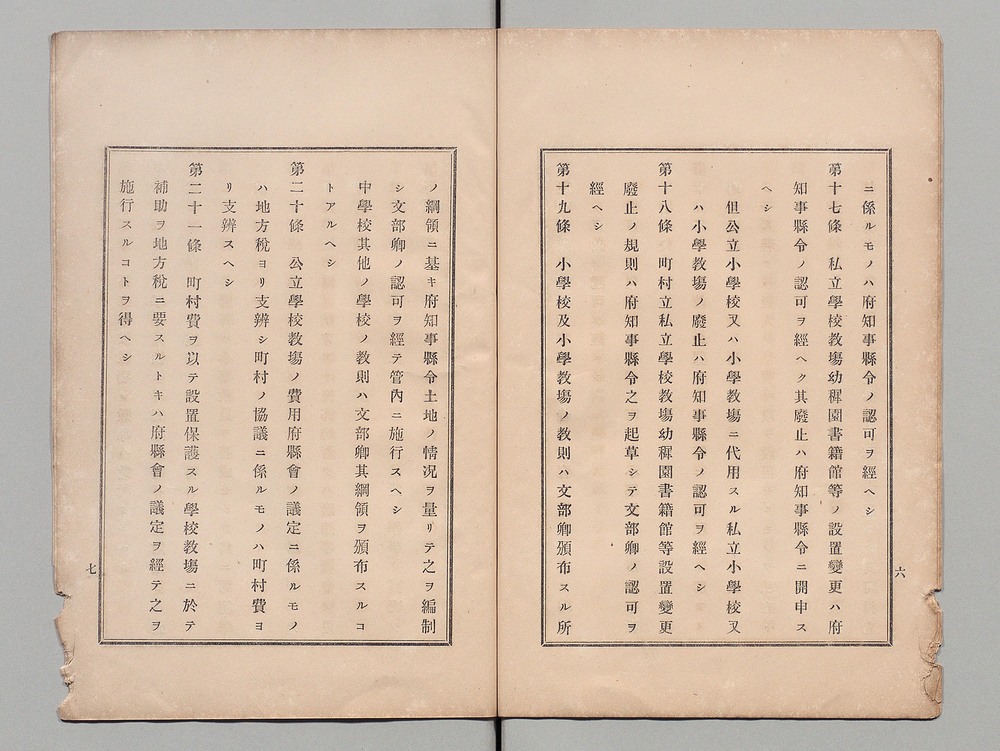 ニ係ルモノハ府知事縣令ノ認可ヲ經ヘシ
第十七條　私立學校教塲幼穉園書籍館等ノ設置變更ハ府
知事縣令ノ認可ヲ經ヘク其廢止ハ府知事縣令ニ開申ス
ヘシ
但公立小學校又ハ小學教塲ニ代用スル私立小學校又
ハ小學教塲ノ廢止ハ府知事縣令ノ認可ヲ經ヘシ
第十八條　町村立私立學校教塲幼穉園書籍館等設置變更
廢止ノ規則ハ府知事縣令之ヲ起草シテ文部卿ノ認可ヲ
經ヘシ
第十九條　小學校及小學教塲ノ教則ハ文部卿頒布スル所
六
ノ綱領ニ基キ府知事縣令土地ノ情况ヲ量リテ之ヲ編制
シ文部卿ノ認可ヲ經テ管內ニ施行スヘシ
中學校其他ノ學校ノ教則ハ文部卿其綱領ヲ頒布スルコ
トアルヘシ
第二十條　公立學校教塲ノ費用府縣會ノ議定ニ係ルモノ
ハ地方稅ヨリ支辨シ町村ノ協議ニ係ルモノハ町村費ヨ
リ支辨スヘシ
第二十一條　町村費ヲ以テ設置保護スル學校教塲ニ於テ
補助ヲ地方稅ニ要スルトキハ府縣會ノ議定ヲ經テ之ヲ
施行スルコトヲ得ヘシ
七